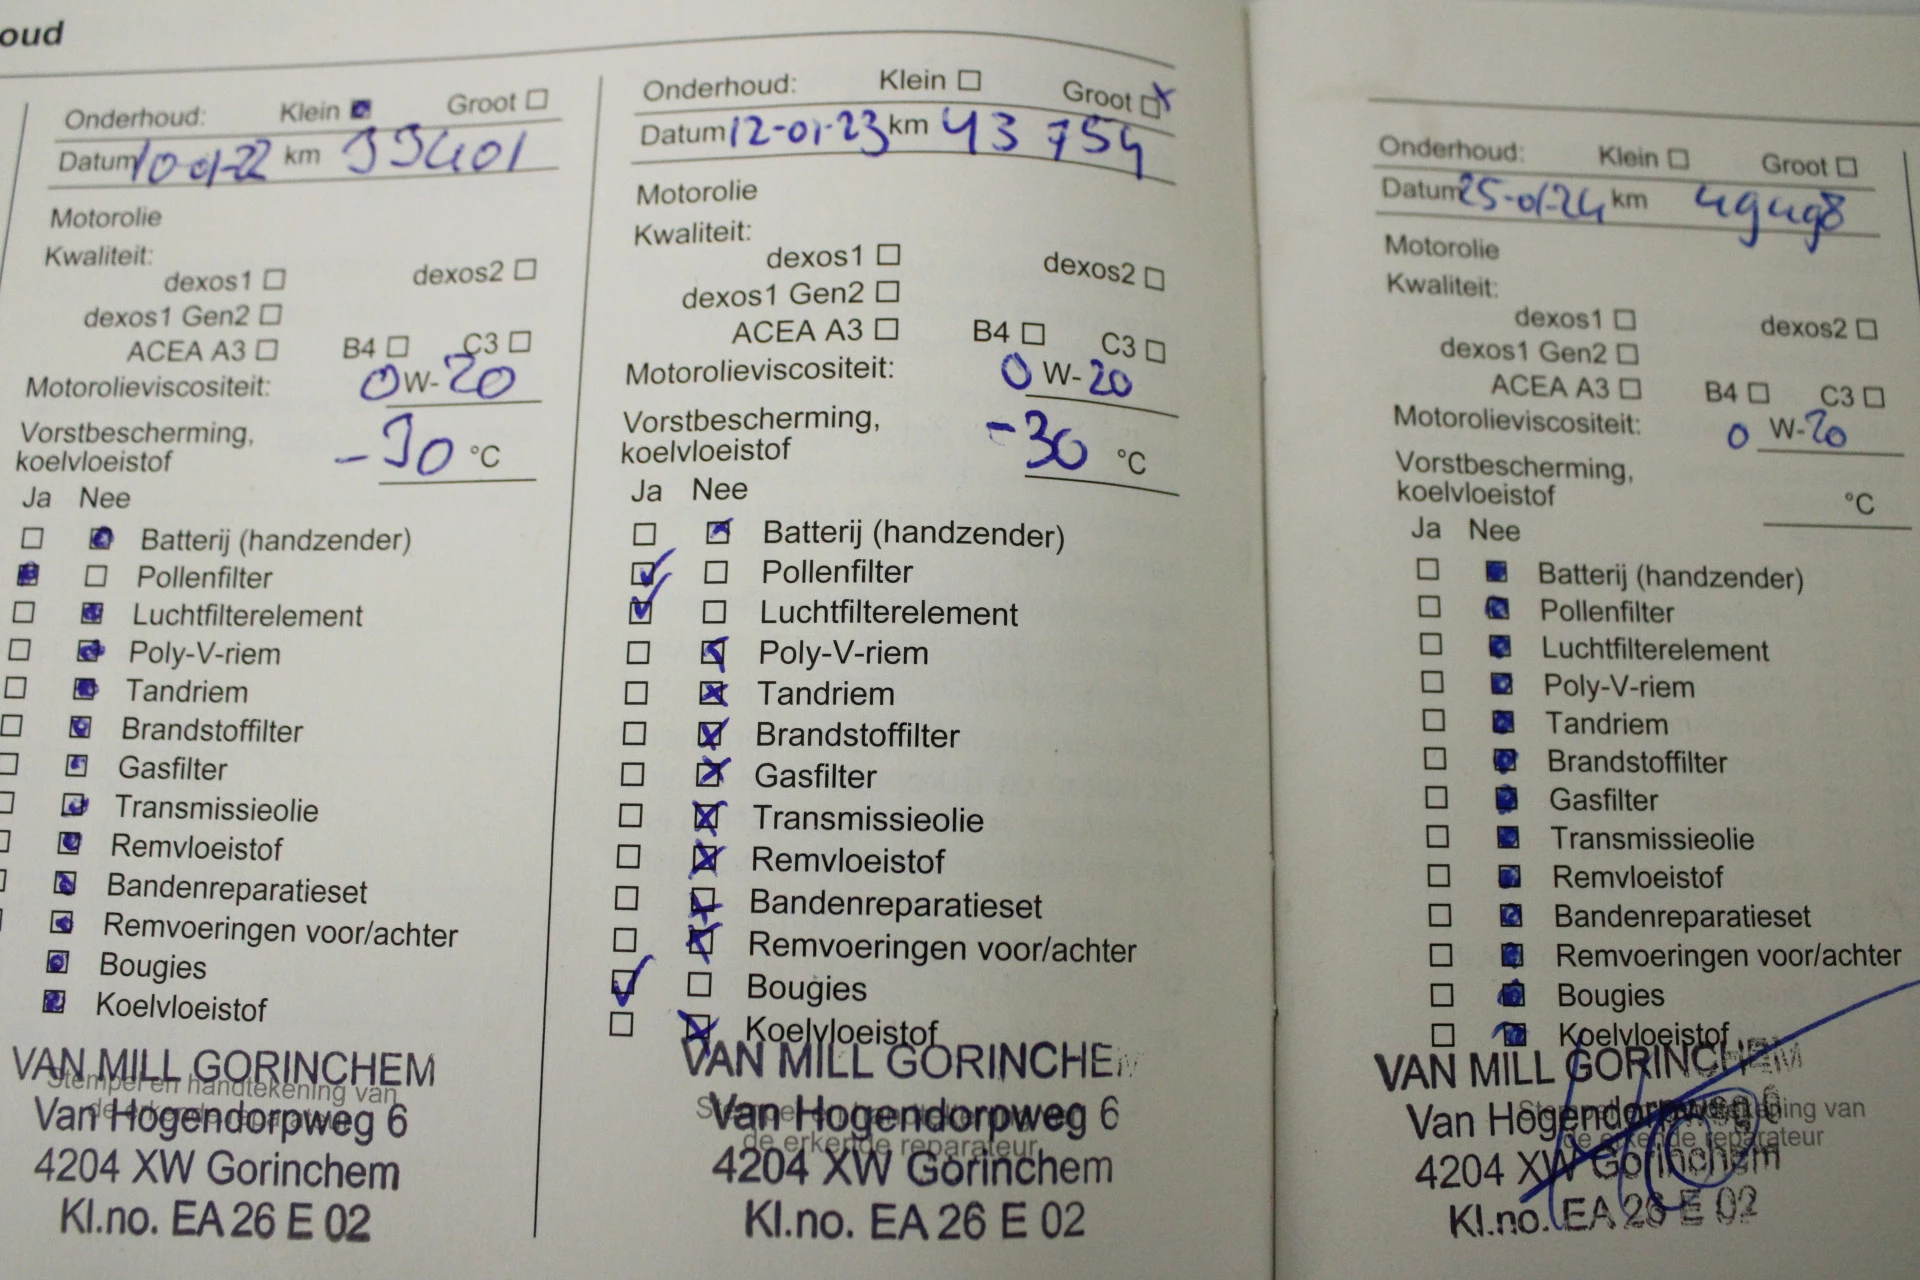 oud
Onderhoud: Klein Groot
Datum 10-01-22 km 33401
Motorolie
Kwaliteit:
dexos1 dexos2
dexos1 Gen2
ACEA A3 B4 C3
Motorolieviscositeit: 0 W-20
Vorstbescherming,
koelvloeistof -30 °C
Ja Nee
Batterij (handzender)
Pollenfilter
Luchtfilterelement
Poly-V-riem
Tandriem
Brandstoffilter
Gasfilter
Transmissieolie
Remvloeistof
Bandenreparatieset
Remvoeringen voor/achter
Bougies
Koelvloeistof
VAN MILL GORINCHEM
Stempel en handtekening van
Van Hogendorpweg 6
de erkende reparateur
4204 XW Gorinchem
Kl.no. EA 26 E 02
Onderhoud: Klein Groot
Datum 12-01-23 km 43 754
Motorolie
Kwaliteit:
dexos1 dexos2
dexos1 Gen2
ACEA A3 B4 C3
Motorolieviscositeit: 0 W-20
Vorstbescherming,
koelvloeistof -30 °C
Ja Nee
Batterij (handzender)
Pollenfilter
Luchtfilterelement
Poly-V-riem
Tandriem
Brandstoffilter
Gasfilter
Transmissieolie
Remvloeistof
Bandenreparatieset
Remvoeringen voor/achter
Bougies
Koelvloeistof
VAN MILL GORINCHEM
Van Hogendorpweg 6
de erkende reparateur
4204 XW Gorinchem
Kl.no. EA 26 E 02
Onderhoud: Klein Groot
Datum 25-01-24 km 49498
Motorolie
Kwaliteit:
dexos1 dexos2
dexos1 Gen2
ACEA A3 B4 C3
Motorolieviscositeit: 0 W-20
Vorstbescherming,
koelvloeistof °C
Ja Nee
Batterij (handzender)
Pollenfilter
Luchtfilterelement
Poly-V-riem
Tandriem
Brandstoffilter
Gasfilter
Transmissieolie
Remvloeistof
Bandenreparatieset
Remvoeringen voor/achter
Bougies
Koelvloeistof
VAN MILL GORINCHEM
Stempel en handtekening van
Van Hogendorpweg 6
de erkende reparateur
4204 XW Gorinchem
Kl.no. EA 26 E 02